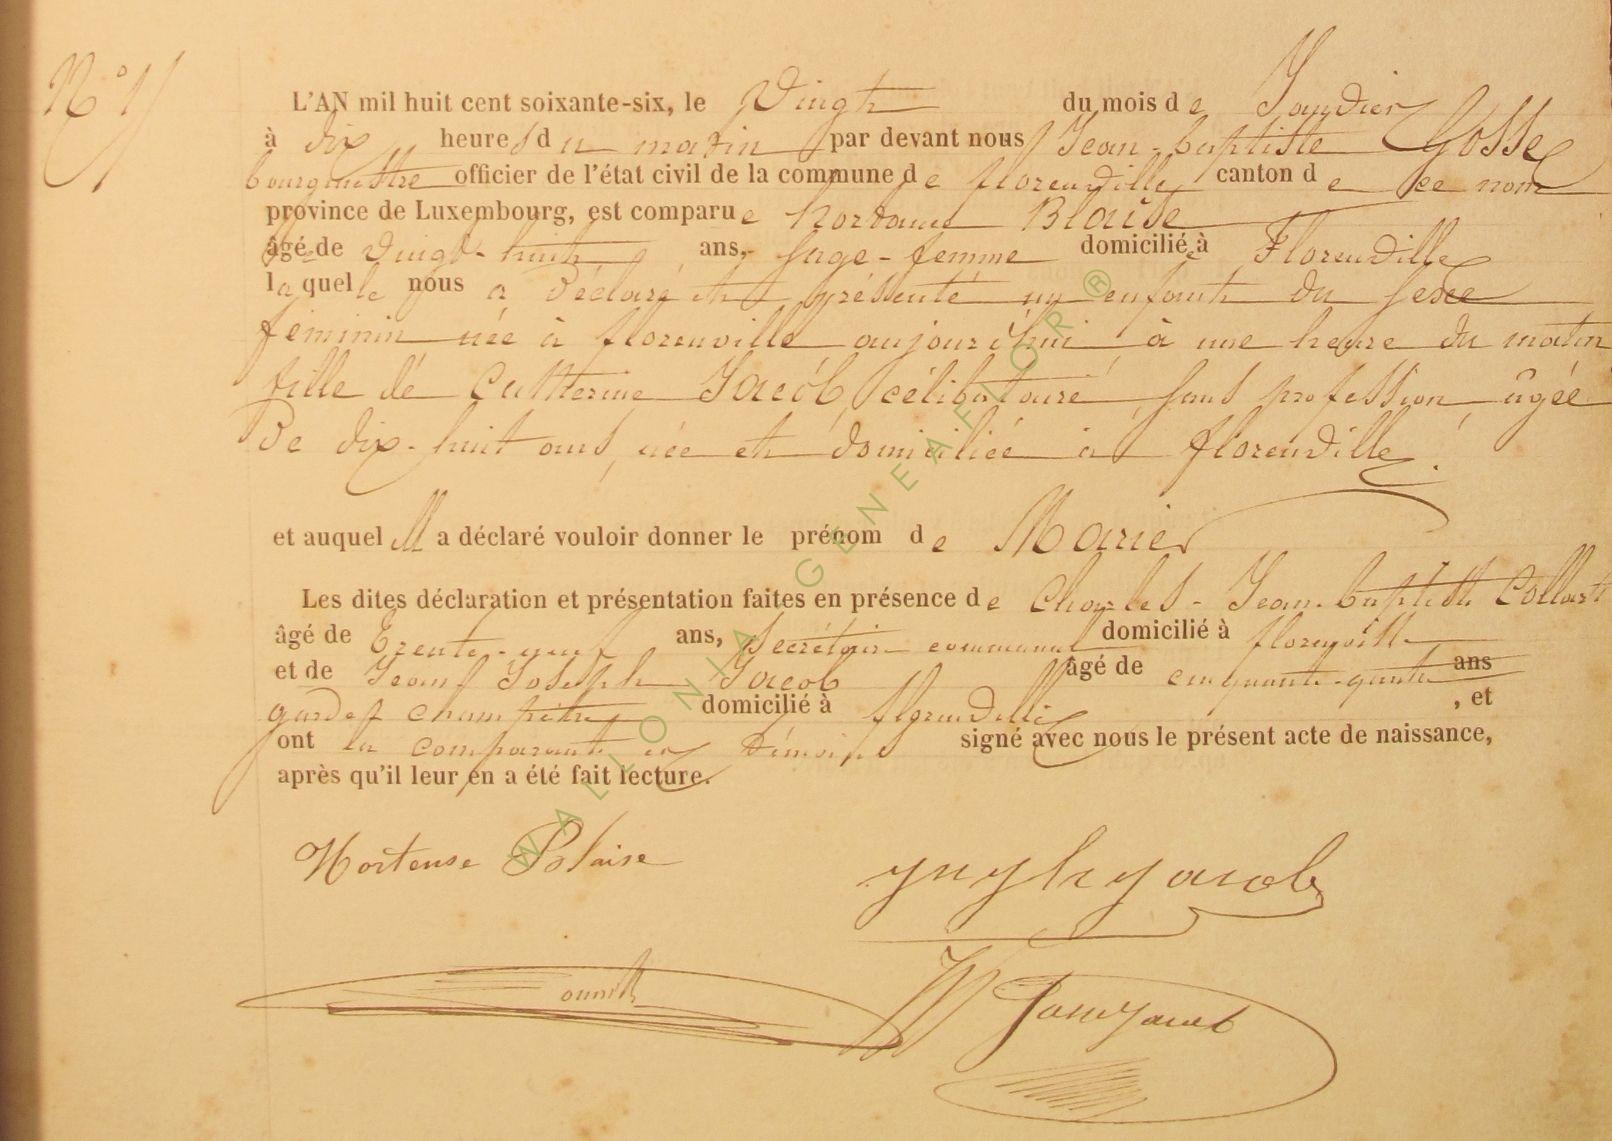 N° 
L'AN mil huit cent soixante-six, le Vingt du mois de Janvier
à dix heures du matin par devant nous Jean-baptiste Gosse
bourgmestre officier de l'état civil de la commune de florenville canton de ce nom
province de Luxembourg, est comparue hortense Blaise
âgée de vingt-huit ans, sage-femme domiciliée à Florenville
laquelle nous a déclaré et présenté un enfant du sexe
féminin née à florenville aujourd'hui à une heure du matin
fille de Catherine Jacob célibataire sans profession âgée
de dix-huit ans, née et domiciliée à florenville.
et auquel Ell a déclaré vouloir donner le prénom de Marie
Les dites déclaration et présentation faites en présence de Charles-Jean-baptiste Collart
âgé de Trente-neuf ans, secrétaire communal domicilié à florenville
et de Jean Joseph Jacob âgé de cinquante ans
garde champêtre domicilié à florenville , et
ont la comparante et témoins signé avec nous le présent acte de naissance,
après qu'il leur en a été fait lecture.
Hortense Blaise
Jacob
WALLONIA GENEAFLOR ®